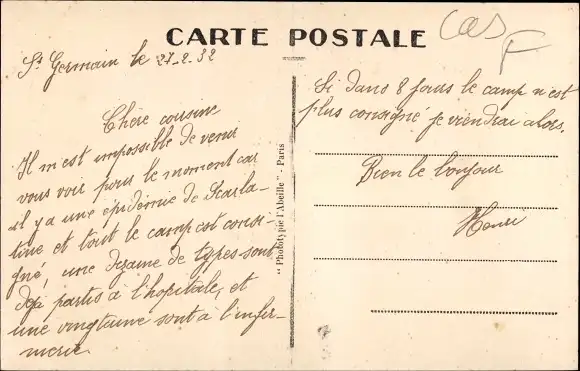 CARTE POSTALE
St Germain le 27-2-32
Chère cousine
Il m'est impossible de venir
vous voir pour le moment car
il y a une épidémie de Scarla-
tine et tout le camp est consi-
gné, une dizaine de types sont
déjà partis à l'hopitale, et
une vingtaine sont à l'infir-
merie.
"Phototypie l'Abeille" - Paris
Cas
F
Si dans 8 jours le camp n'est
plus consigné je viendrai alors.
Bien le bonjour
Henri